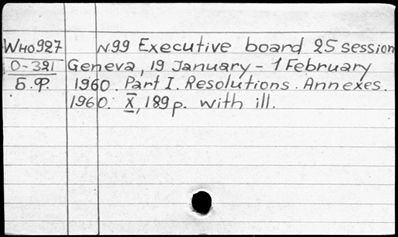 Who927 N99 Executive board 25 session
O-321 Geneva, 19 January - 1 February
Б.Ф. 1960. Part I. Resolutions. Annexes.
1960. X, 189 p. with ill.